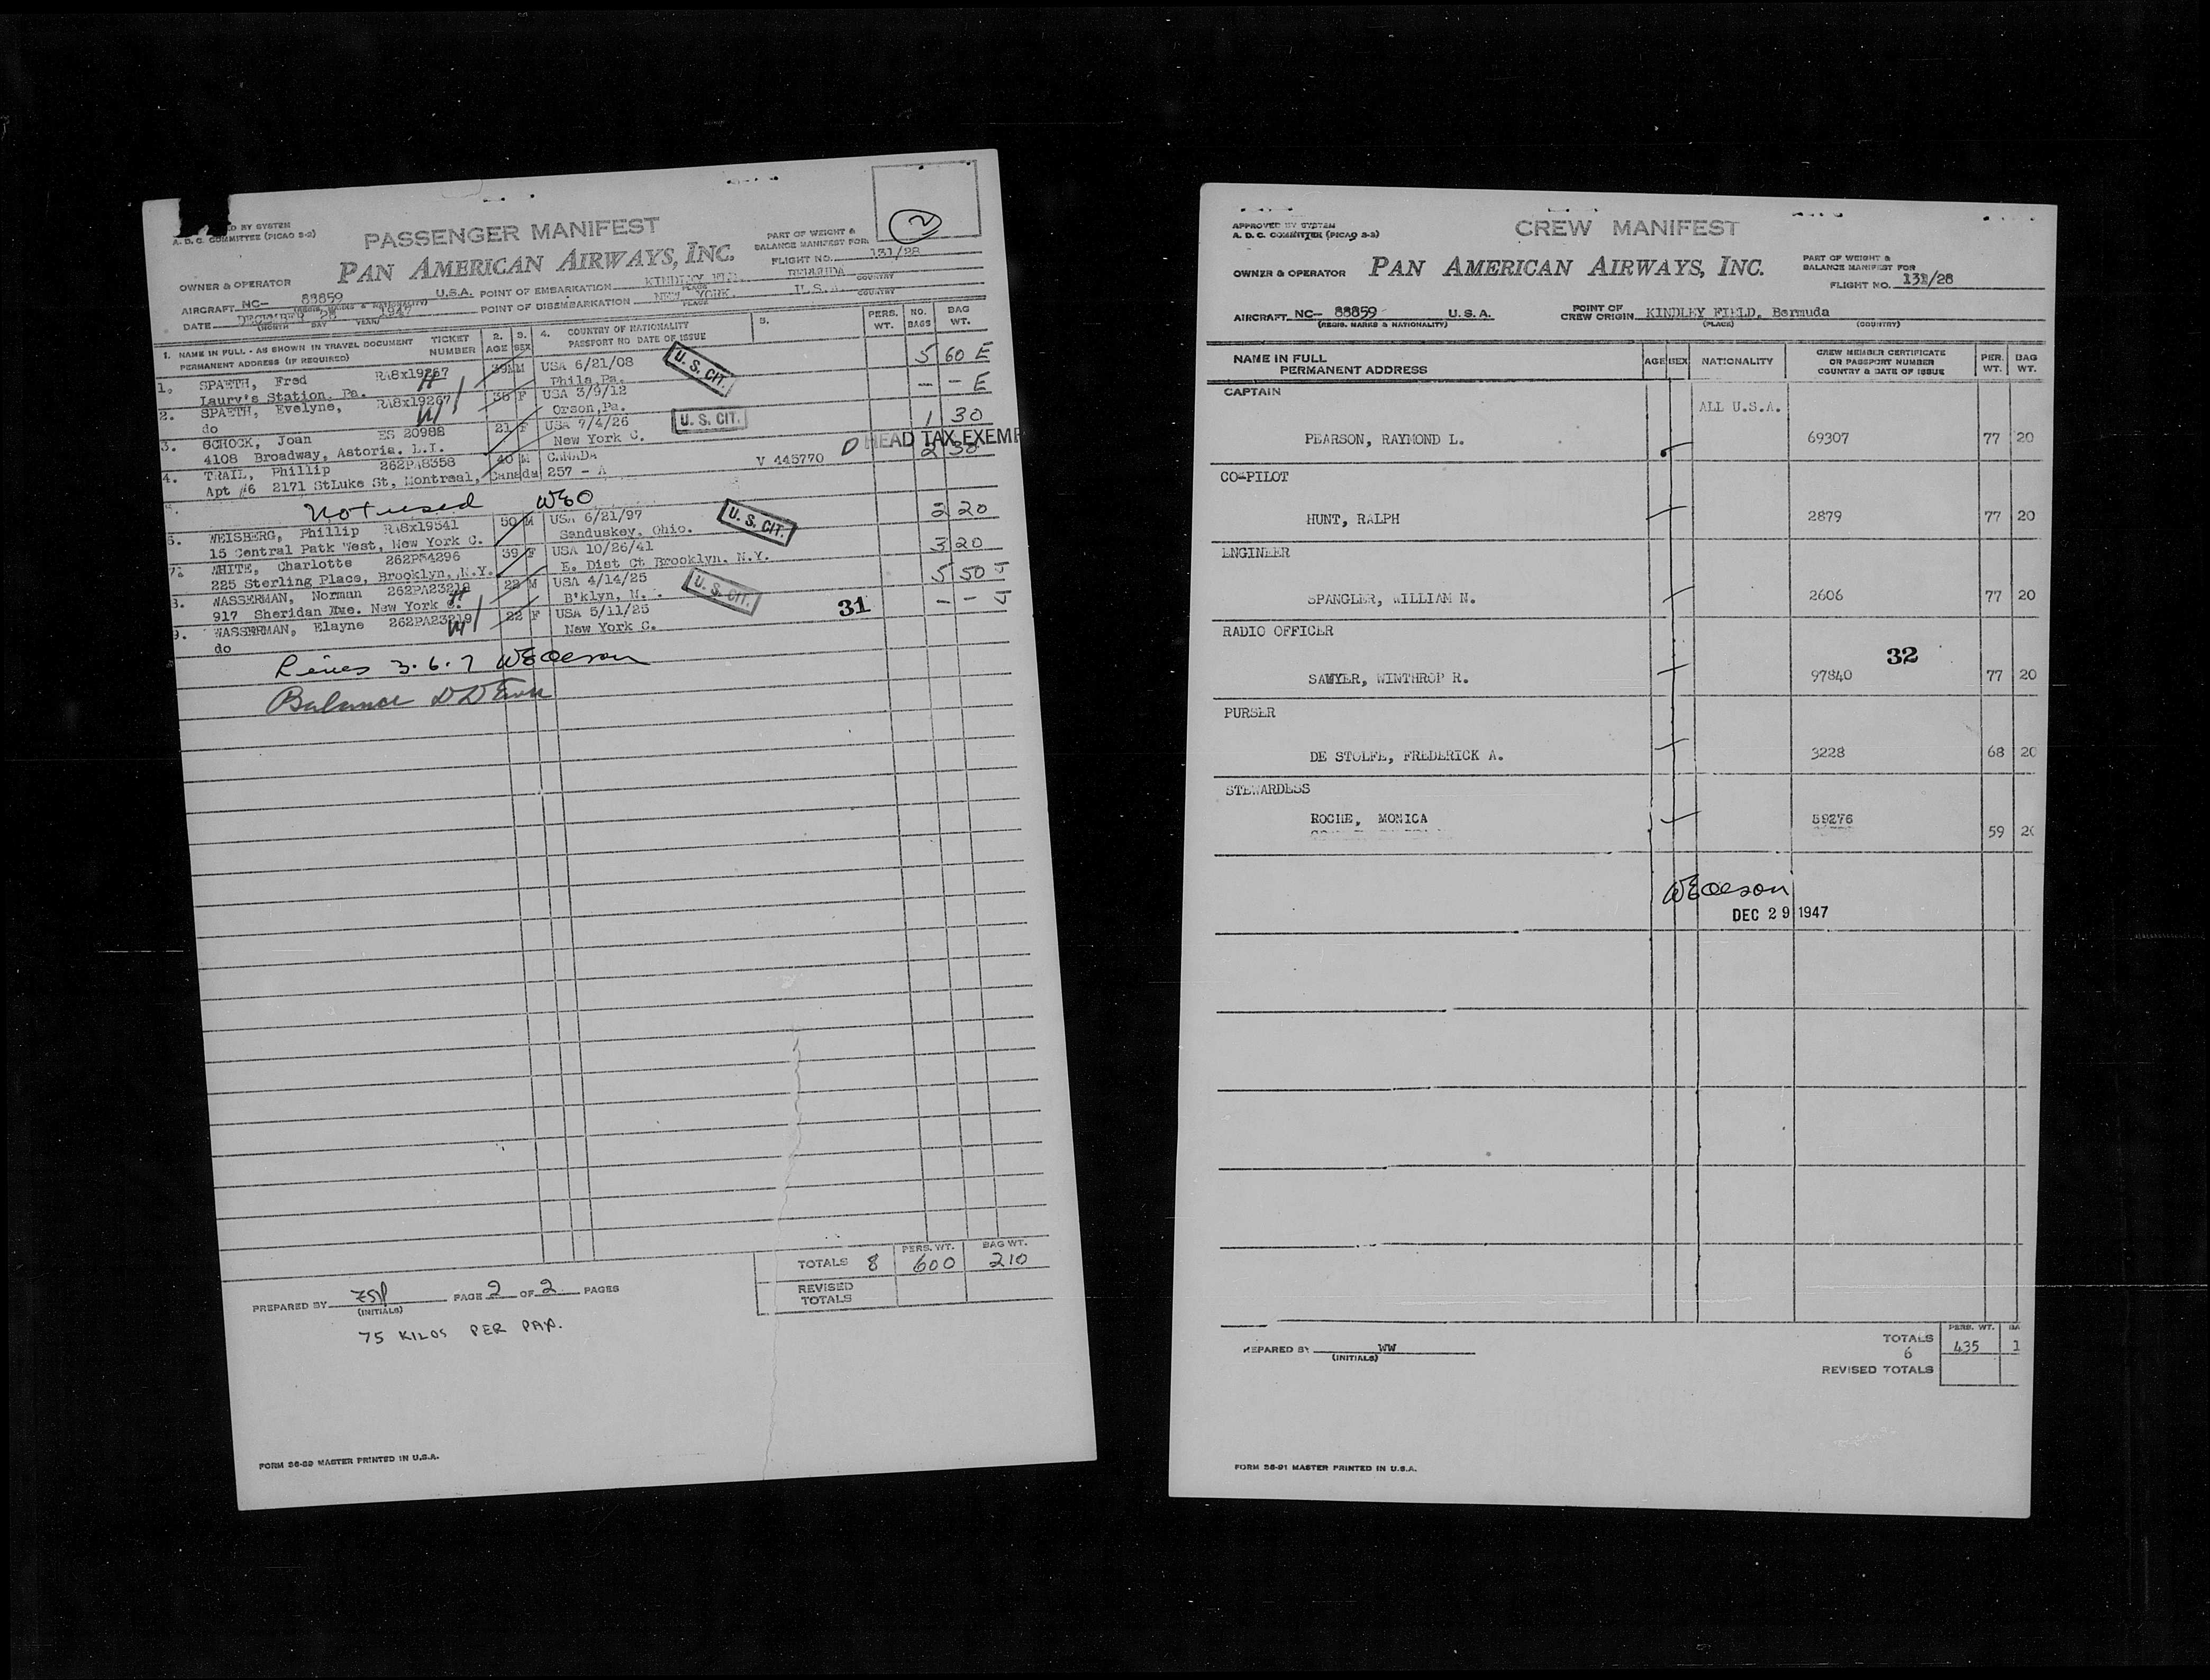 D BY SYSTEM
A. D. C. COMMITTEE (PICAO 2-2)
PASSENGER MANIFEST
2
PART OF WEIGHT &
BALANCE MANIFEST FOR
FLIGHT NO. 131/28
OWNER & OPERATOR PAN AMERICAN AIRWAYS, INC.
AIRCRAFT NC- 88859 U.S.A. POINT OF EMBARKATION KINDLEY FLD. BERMUDA
(REGIS. MARKS & NATIONALITY) PLACE COUNTRY
DATE DECEMBER 28 1947 POINT OF DISEMBARKATION NEW YORK. U.S.A.
(MONTH DAY YEAR) PLACE COUNTRY
1. NAME IN FULL - AS SHOWN IN TRAVEL DOCUMENT TICKET NUMBER 2. AGE 3. SEX 4. COUNTRY OF NATIONALITY 5. PERS. WT. NO. BAGS BAG WT.
PERMANENT ADDRESS (IF REQUIRED) PASSPORT NO DATE OF ISSUE
1. SPAETH, Fred RA8x19267 39 M USA 6/21/08 U. S. CIT. 5 60 E
Laury's Station, Pa. Phila,Pa.
2. SPAETH, Evelyne, RA8x19267 36 F USA 3/9/12 - - E
do Orson,Pa.
3. SCHOCK, Joan ES 20988 21 F USA 7/4/26 U. S. CIT. 1 30
4108 Broadway, Astoria. L.I. New York C.
HEAD TAX EXEMP
4. TRAIL, Phillip 262PA8358 40 M CANADA V 445770 2 30
Apt #6 2171 StLuke St, Montreal, Canada 257 - A
Not used WEO
WEISBERG, Phillip RA8x19541 50 M USA 6/21/97 U. S. CIT. 2 20
15 Central Patk West, New York C. Sanduskey, Ohio.
7. WHITE, Charlotte 262PA4296 39 F USA 10/26/41 3 20
225 Sterling Place, Brooklyn, N.Y. E. Dist Ct Brooklyn. N.Y.
8. WASSERMAN, Norman 262PA23219 22 M USA 4/14/25 U. S. CIT. 5 50 J
917 Sheridan Ave. New York C. B'klyn, N. .
9. WASSERMAN, Elayne 262PA23219 22 F USA 5/11/25 31 - - J
do New York C.
Lines 3.6.7 WEOleson
Balance
TOTALS 8 PERS. WT. 600 BAG WT. 210
REVISED TOTALS
PREPARED BY PAGE 2 OF 2 PAGES
(INITIALS)
75 KILOS PER PAX.
FORM 36-89 MASTER PRINTED IN U.S.A.
APPROVED BY SYSTEM
A. D. C. COMMITTEE (PICAO 2-2)
CREW MANIFEST
OWNER & OPERATOR PAN AMERICAN AIRWAYS, INC.
PART OF WEIGHT &
BALANCE MANIFEST FOR
FLIGHT NO. 131/28
AIRCRAFT NC- 88859 U.S.A. POINT OF CREW ORIGIN KINDLEY FIELD, Bermuda
(REGIS. MARKS & NATIONALITY) (PLACE) (COUNTRY)
NAME IN FULL AGE SEX NATIONALITY CREW MEMBER CERTIFICATE OR PASSPORT NUMBER PER. WT. BAG WT.
PERMANENT ADDRESS COUNTRY & DATE OF ISSUE
CAPTAIN
ALL U.S.A.
PEARSON, RAYMOND L. 69307 77 20
CO-PILOT
HUNT, RALPH 2879 77 20
ENGINEER
SPANGLER, WILLIAM N. 2606 77 20
RADIO OFFICER
32
SAWYER, WINTHROP R. 97840 77 20
PURSER
DE STOLFE, FREDERICK A. 3228 68 20
STEWARDESS
ROCHE, MONICA 59276
59 20
WEOleson
DEC 29 1947
PERS. WT. BA
TOTALS 6 435 1
REVISED TOTALS
REPARED BY WW
(INITIALS)
FORM 36-91 MASTER PRINTED IN U.S.A.